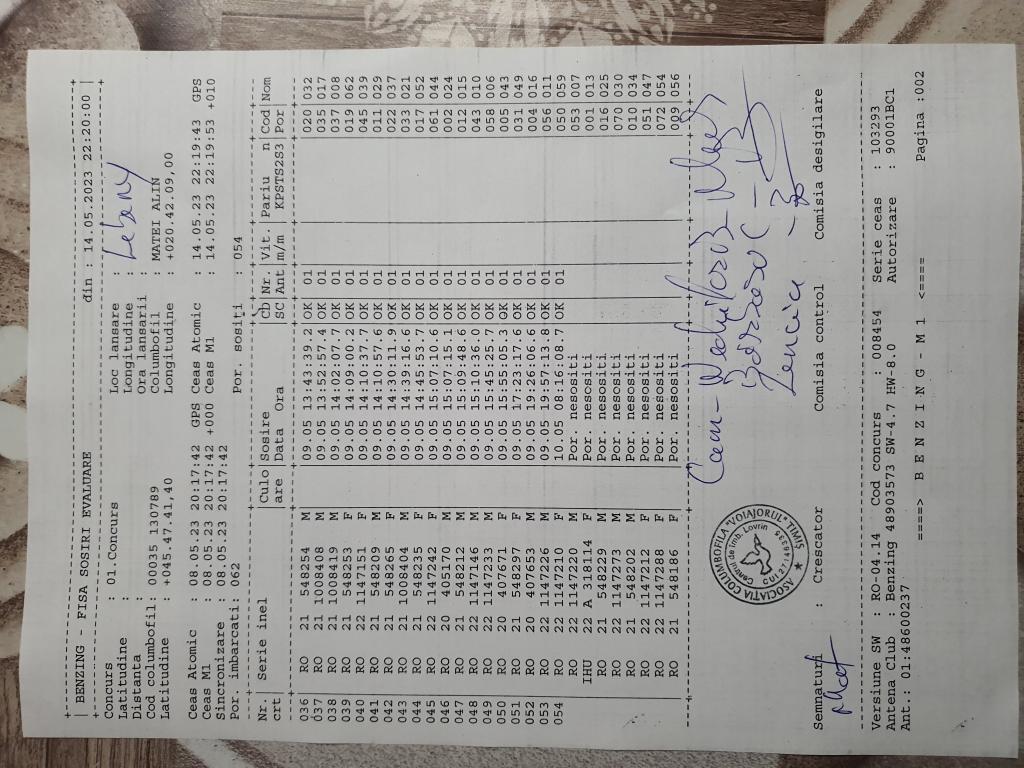 BENZING - FISA SOSIRI EVALUARE din : 14.05.2023 22:20:00
Concurs : 01.Concurs Loc lansare : Lebeny
Latitudine : Longitudine :
Distanta : Ora lansarii :
Cod columbofil: 00035 130789 Columbofil : MATEI ALIN
Latitudine : +045.47.41,40 Longitudine : +020.42.09,00
Ceas Atomic : 08.05.23 20:17:42 GPS Ceas Atomic : 14.05.23 22:19:43 GPS
Ceas M1 : 08.05.23 20:17:42 +000 Ceas M1 : 14.05.23 22:19:53 +010
Sincronizare : 08.05.23 20:17:42
Por. imbarcati: 062 Por. sositi : 054
Nr. Serie inel Culo Sosire Ch Nr. Vit. Pariu n Cod Nom
crt are Data Ora SC Ant m/m KPSTS2S3 Por
036 RO 21 548254 M 09.05 13:43:39.2 OK 01 020 032
037 RO 21 1008408 M 09.05 13:52:57.4 OK 01 035 017
038 RO 21 1008419 M 09.05 14:02:07.7 OK 01 037 008
039 RO 21 548253 F 09.05 14:09:00.2 OK 01 019 062
040 RO 22 1147151 F 09.05 14:10:37.7 OK 01 045 039
041 RO 21 548209 M 09.05 14:10:57.6 OK 01 011 029
042 RO 21 548265 M 09.05 14:30:11.9 OK 01 022 037
043 RO 21 1008404 M 09.05 14:39:16.6 OK 01 033 021
044 RO 21 548235 F 09.05 14:45:53.7 OK 01 017 052
045 RO 22 1147242 F 09.05 15:07:10.6 OK 01 061 044
046 RO 20 405170 M 09.05 15:07:15.1 OK 01 002 024
047 RO 21 548212 M 09.05 15:09:48.6 OK 01 012 015
048 RO 22 1147146 M 09.05 15:10:36.0 OK 01 043 010
049 RO 22 1147233 M 09.05 15:45:25.7 OK 01 058 006
050 RO 20 407671 F 09.05 15:55:05.3 OK 01 005 043
051 RO 21 548297 F 09.05 17:23:17.6 OK 01 031 049
052 RO 20 407653 M 09.05 19:26:06.6 OK 01 004 016
053 RO 22 1147226 M 09.05 19:57:13.8 OK 01 056 011
054 RO 22 1147210 F 10.05 08:16:08.7 OK 01 050 059
RO 22 1147220 M Por. nesositi 053 007
IHU 22 A 318114 F Por. nesositi 001 013
RO 21 548229 M Por. nesositi 016 025
RO 22 1147273 M Por. nesositi 070 030
RO 21 548202 M Por. nesositi 010 034
RO 22 1147212 F Por. nesositi 051 047
RO 22 1147288 F Por. nesositi 072 054
RO 21 548186 F Por. nesositi 009 056
ASOCIAȚIA COLUMBOFILA "VOIAJORUL" TIMIȘ
Centrul de îmb. Lovrin
Semnaturi : Crescator Comisia control Comisia desigilare
Versiune SW : RO-04.14 Cod concurs : 008454 Serie ceas : 103293
Antena Club : Benzing 48903573 SW-4.7 HW-8.0 Autorizare : 90001BC1
Ant.: 01:48600237
====> B E N Z I N G - M 1 <==== Pagina :002